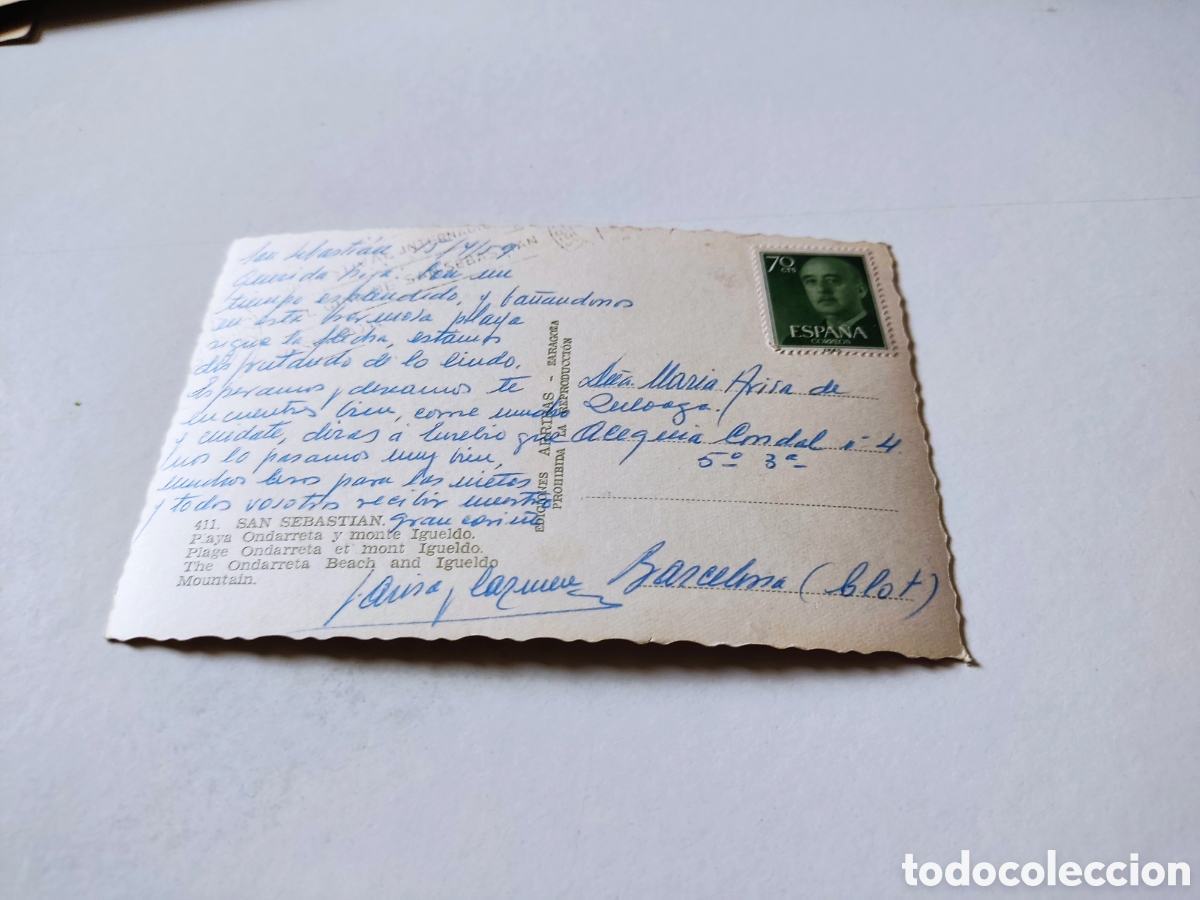 San Sebastián 13/7/59
Querida hija. Con un
tiempo esplendido, y bañandonos
en esta hermosa playa
sigue la flecha, estamos
disfrutando de lo lindo.
Esperamos y deseamos te
encuentres bien, come mucho
y cuidate, diras a Eusebio que
nos lo pasamos muy bien,
muchos besos para los nietos
y todos vosotros recibir nuestro
gran cariño
411. SAN SEBASTIAN.
Playa Ondarreta y monte Igueldo.
Plage Ondarreta et mont Igueldo.
The Ondarreta Beach and Igueldo
Mountain.
y Carmen
EDICIONES ARRIBAS - ZARAGOZA
PROHIBIDA LA REPRODUCCIÓN
INTERNACIONAL
DE SAN SEBASTIAN
70
CTS
ESPAÑA
CORREOS
Dña Maria Arisa de
Zuloaga.
Acequia Condal nº 4
5º 3ª
Barcelona (Clot)
todocoleccion